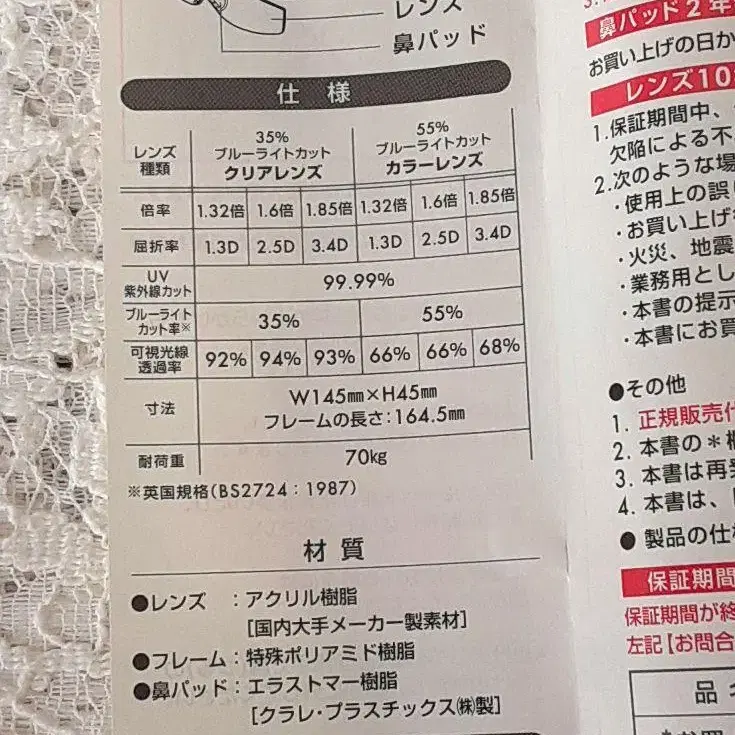 レンズ
鼻パッド
仕 様
レンズ種類 35%ブルーライトカットクリアレンズ 55%ブルーライトカットカラーレンズ
倍率 1.32倍 1.6倍 1.85倍 1.32倍 1.6倍 1.85倍
屈折率 1.3D 2.5D 3.4D 1.3D 2.5D 3.4D
UV紫外線カット 99.99%
ブルーライトカット率※ 35% 55%
可視光線透過率 92% 94% 93% 66% 66% 68%
寸法 W145㎜×H45㎜
フレームの長さ:164.5㎜
耐荷重 70kg
※英国規格(BS2724:1987)
材 質
●レンズ :アクリル樹脂
[国内大手メーカー製素材]
●フレーム:特殊ポリアミド樹脂
●鼻パッド:エラストマー樹脂
[クラレ・プラスチックス㈱製]
鼻パッド2年
お買い上げの日か
レンズ10
1.保証期間中、
欠陥による不
2.次のような場
・使用上の誤
・お買い上げ
・火災、地震
・業務用とし
・本書の提示
・本書にお買
●その他
1. 正規販売
2. 本書の*
3. 本書は再
4. 本書は、
●製品の仕
保証期間
保証期間が終
左記【お問合
品